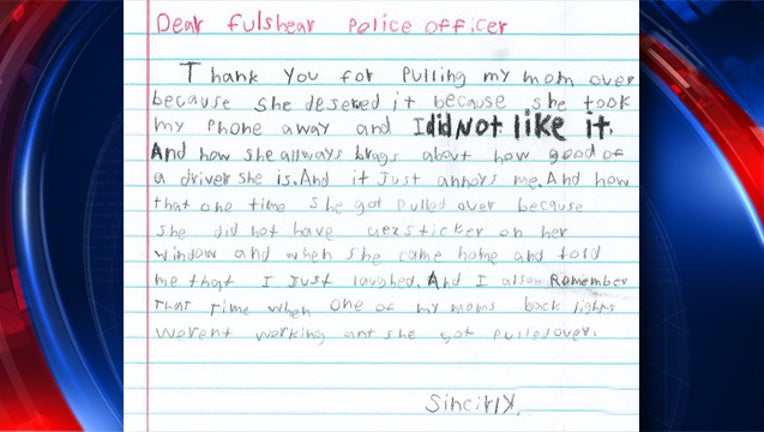 Dear fulshear police officer
Thank You for Pulling my mom over
because she deserved it because she took
my Phone away and I did Not like it.
And how she allways brags about how good of
a driver she is. And it Just annoys me. And how
that one time she got pulled over because
she did not have sticker on her
window and when she came home and told
me that I Just laughed. And I also Remember
THAT Time when one of my moms back lights
Werent working ant she got Pulled over.
Sincirly,